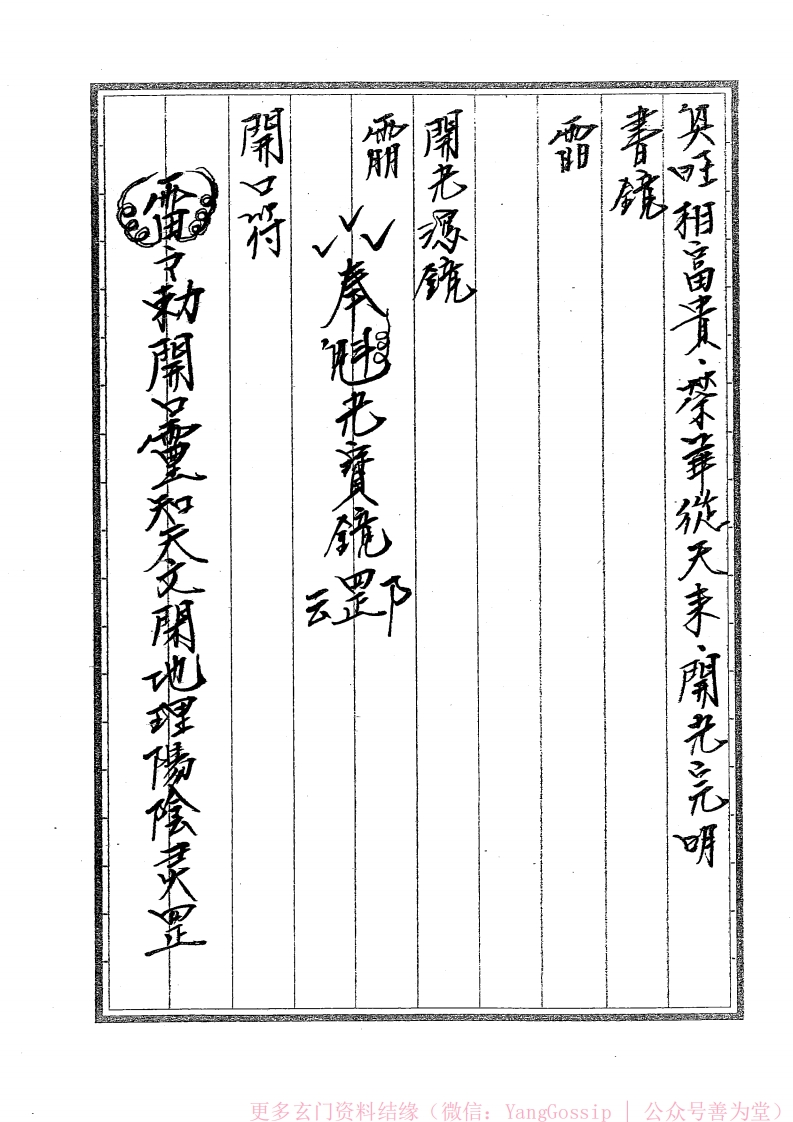 旺相富貴、榮華從天來、開光完明
書鏡
䨏
開光鏡
奉魁光寶鏡罡
開口符
雷令勅開口靈知天文開地理陽陰灵罡
更多玄门资料结缘（微信：YangGossip | 公众号善为堂）